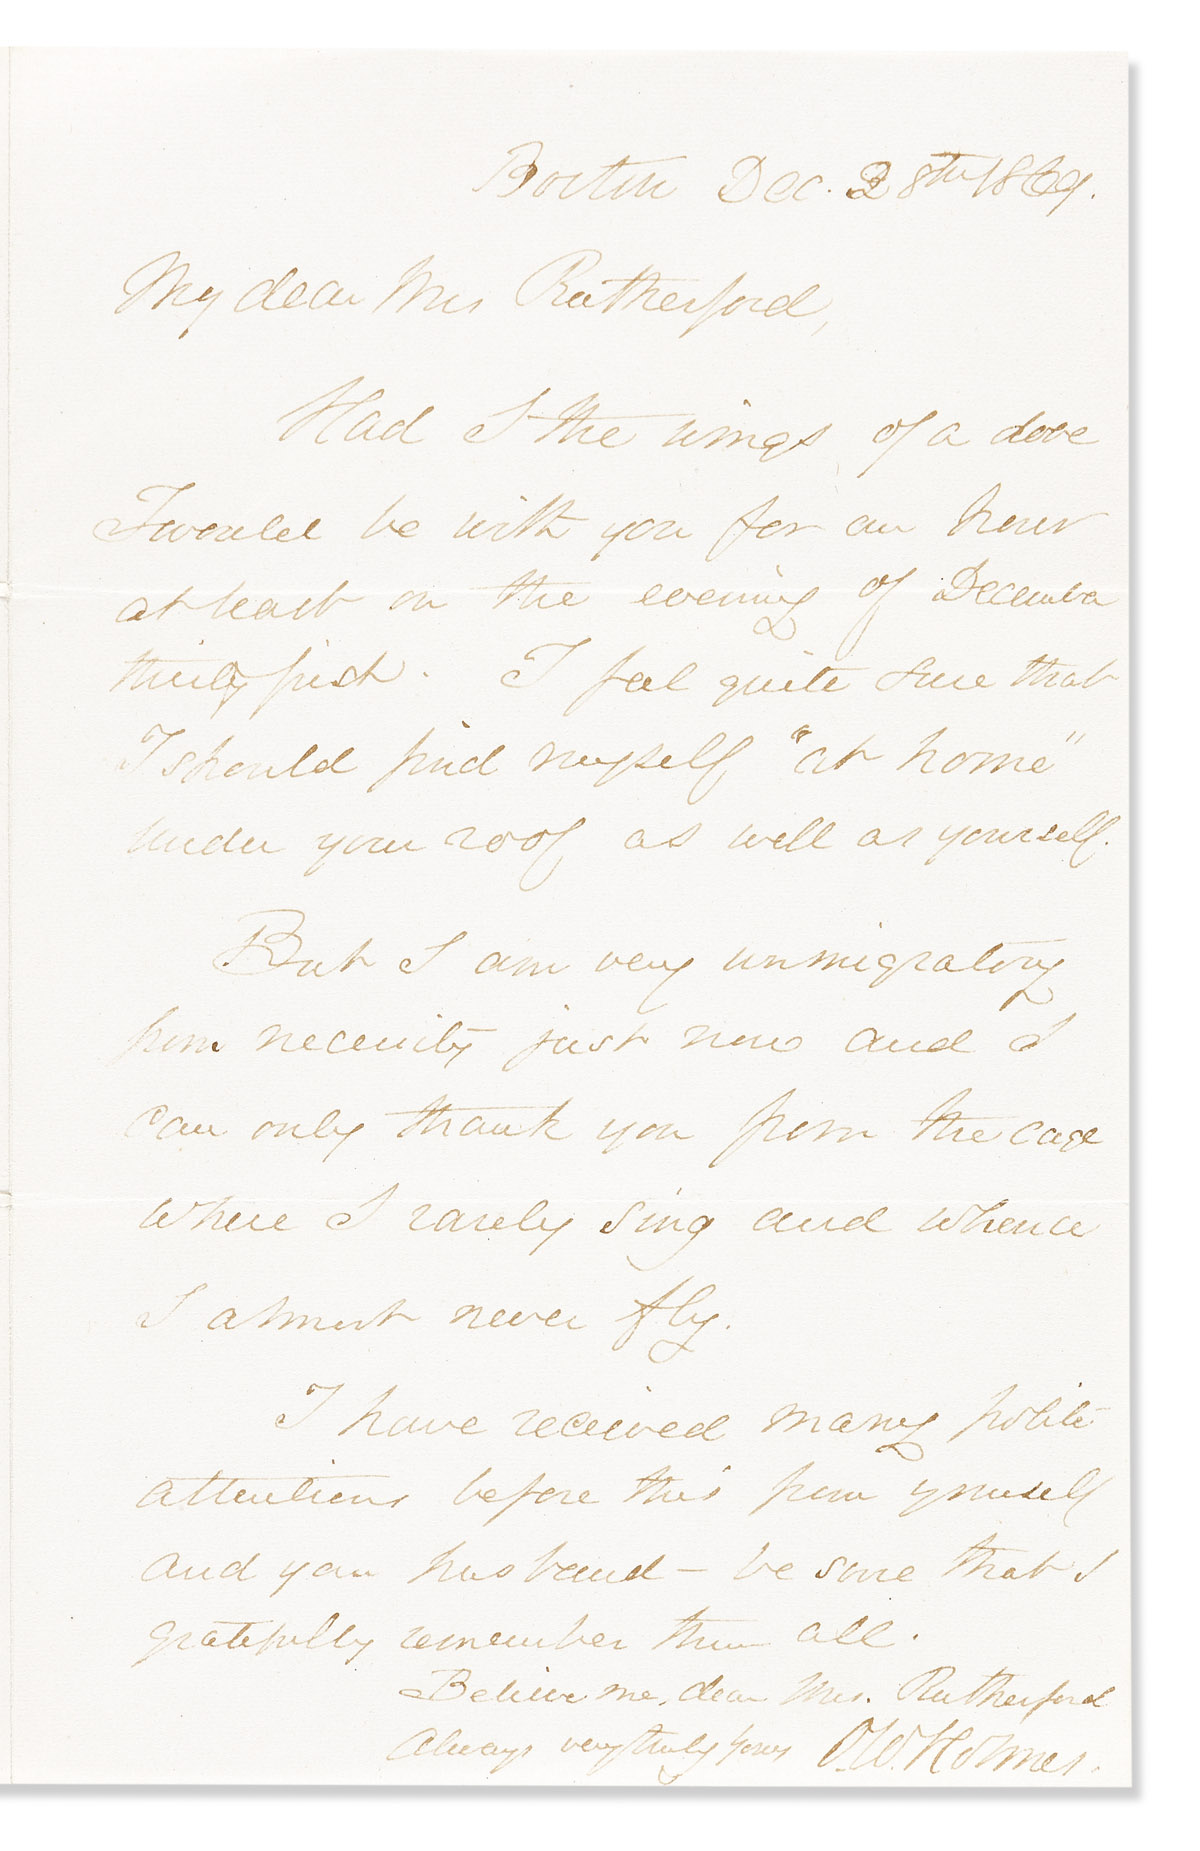 Boston Dec. 28th 1869.
My dear Mrs Rutherford,
Had I the wings of a dove
I would be with you for an hour
at least on the evening of December
thirty first. I feel quite sure that
I should find myself "at home"
under your roof as well as yourself.
But I am very unmigratory
from necessity just now and I
can only thank you from the cage
where I rarely sing and whence
I almost never fly.
I have received many polite
attentions before this from yourself
and your husband – be sure that I
gratefully remember them all.
Believe me, dear Mrs. Rutherford
Always very truly yours O.W. Holmes.